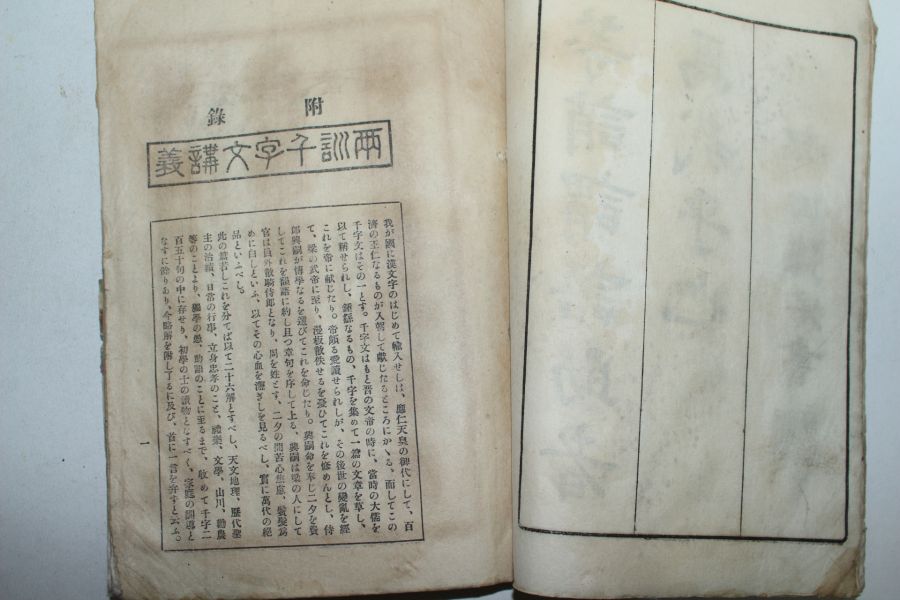 附錄
兩訓千字文講義
我が國に漢文字のはじめて輸入せしは、應仁天皇の御代にして、百
濟の王仁なるものが入朝して獻じたるところにかゝる、而してこの
千字文はその一とす。千字文はもと晋の文帝の時に、當時の大儒を
以て稱せられし、鍾繇なるもの、千字を集めて一篇の文章を草し、
これを帝に献じたり。帝頗る愛議せられしが、その後世の變亂を經
て、梁の武帝に至り、漫板散佚せるを憂ひてこれを修めんとし、侍
郎興嗣が博學なるを選びてこれを命じたり。興嗣命を奉じ二夕を費
してこれを韻語に約し且つ章句を序して上る、興嗣は梁の人にして
官は員外散騎侍郎となり、周を姓とす、二夕の間苦心焦慮、鬢髮爲
めに白しといふ、以てその心血を濺ぎしを見るべし、實に萬代の絕
品といふべし。
此の篇若しこれを分てば以て二十六解とすべし、天文地理、歷代聖
主の治績、日常の行事、立身忠孝のこと、禮樂、文學、山川、勸農
等のことより、獨學の愚、助語のことに至るまで、敢めて千字二
百五十句の中に存せり、初學の士の讀物となすべく、家庭の訓導と
なすに餘りあり、今略解を附し了るに及び、首に一言を弁すと云ふ。
一